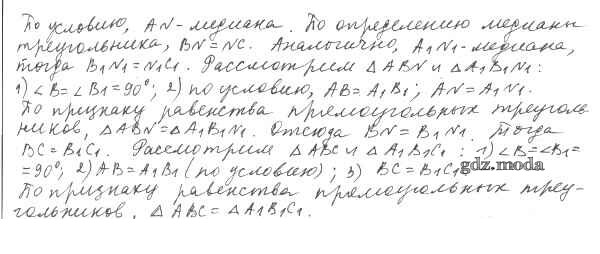 По условию, AN - медиана. По определению медианы
треугольника, BN = NC. Аналогично, A₁N₁ - медиана,
тогда B₁N₁ = N₁C₁. Рассмотрим △ABN и △A₁B₁N₁:
1) ∠B = ∠B₁ = 90°; 2) по условию, AB = A₁B₁; AN = A₁N₁.
По признаку равенства прямоугольных треуголь-
ников, △ABN = △A₁B₁N₁. Отсюда BN = B₁N₁, тогда
BC = B₁C₁. Рассмотрим △ABC и △A₁B₁C₁: 1) ∠B = ∠B₁ =
= 90°; 2) AB = A₁B₁ (по условию); 3) BC = B₁C₁.
gdz.moda
По признаку равенства прямоугольных треу-
гольников, △ABC = △A₁B₁C₁.